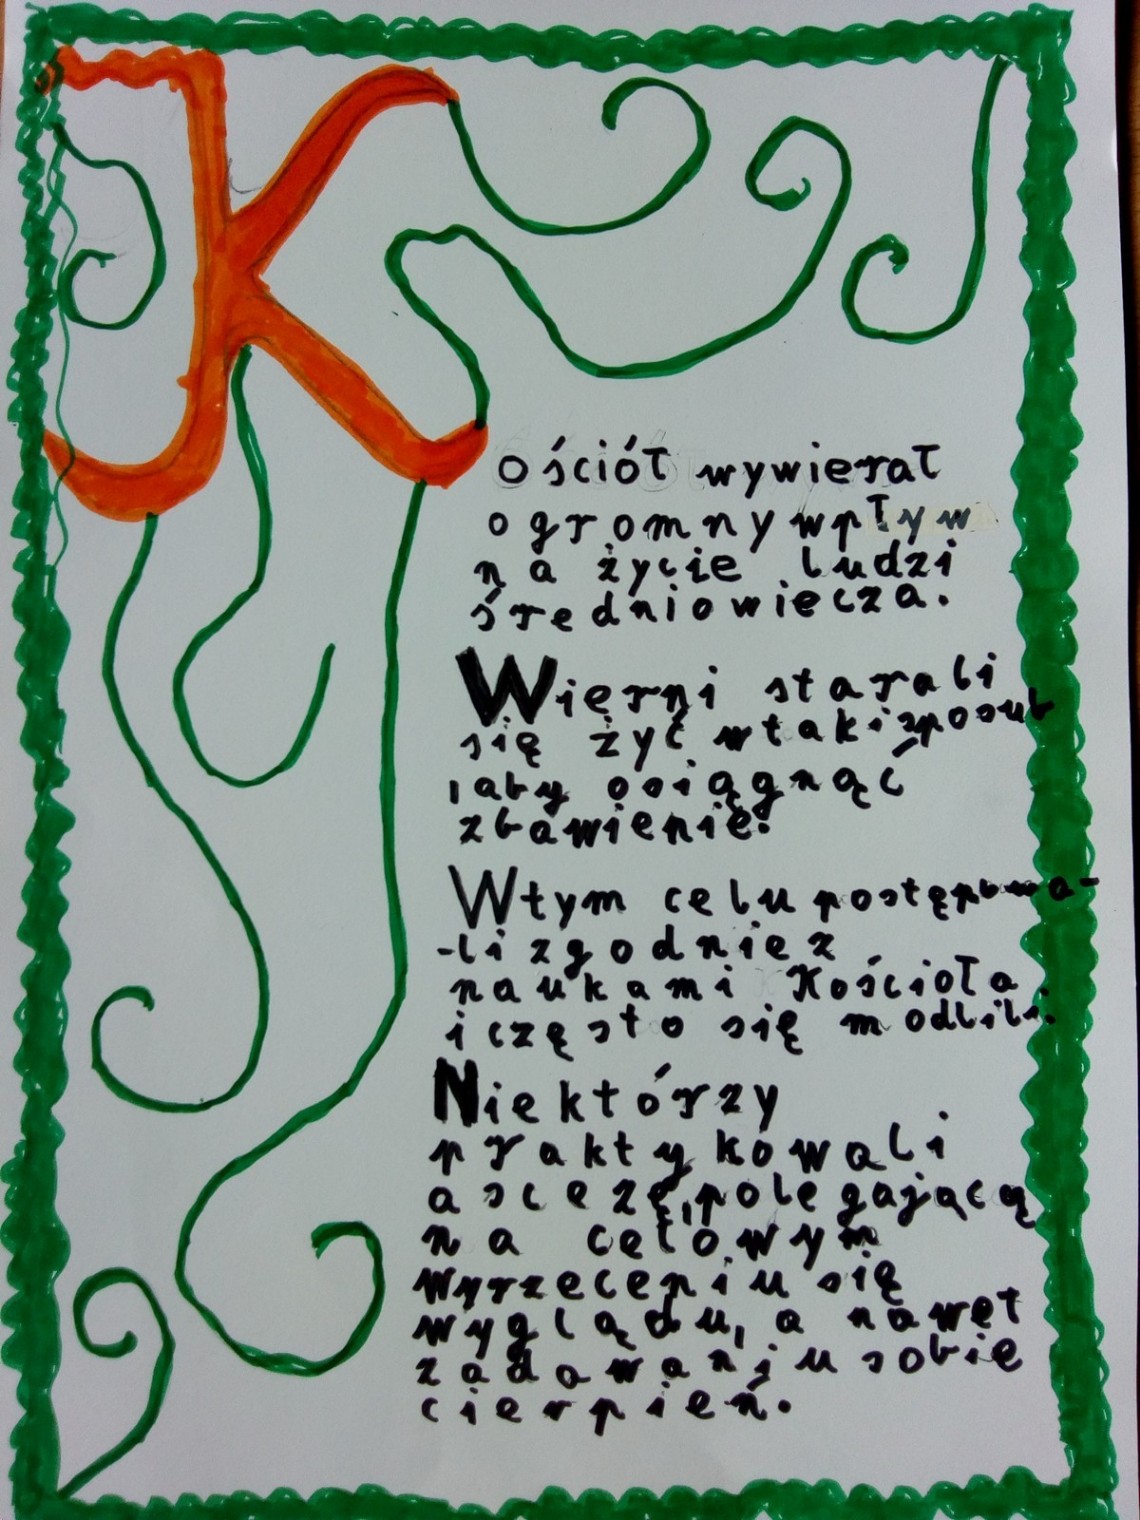 Kościół wywierał
ogromny wpływ
na życie ludzi
średniowiecza.
Wierni starali
się żyć w taki sposub
, aby osiągnąć
zbawienie.
W tym celu postępowa-
-li zgodnie z
naukami Kościoła
i często się modlili.
Niektórzy
praktykowali
ascezę, polegającą
na celowym
wyrzeceniu się
wyglądu, a nawet
zadawaniu sobie
cierpień.